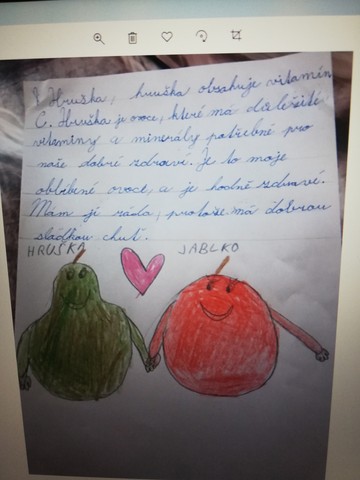 Hruška, hruška obsahuje vitamín
C. Hruška je ovoce, které má důležité
vitamíny a minerály potřebné pro
naše dobré zdraví. Je to moje
oblíbené ovoce, a je hodně zdravé.
Mám ji ráda, protože má dobrou
sladkou chuť.
HRUŠKA JABLKO